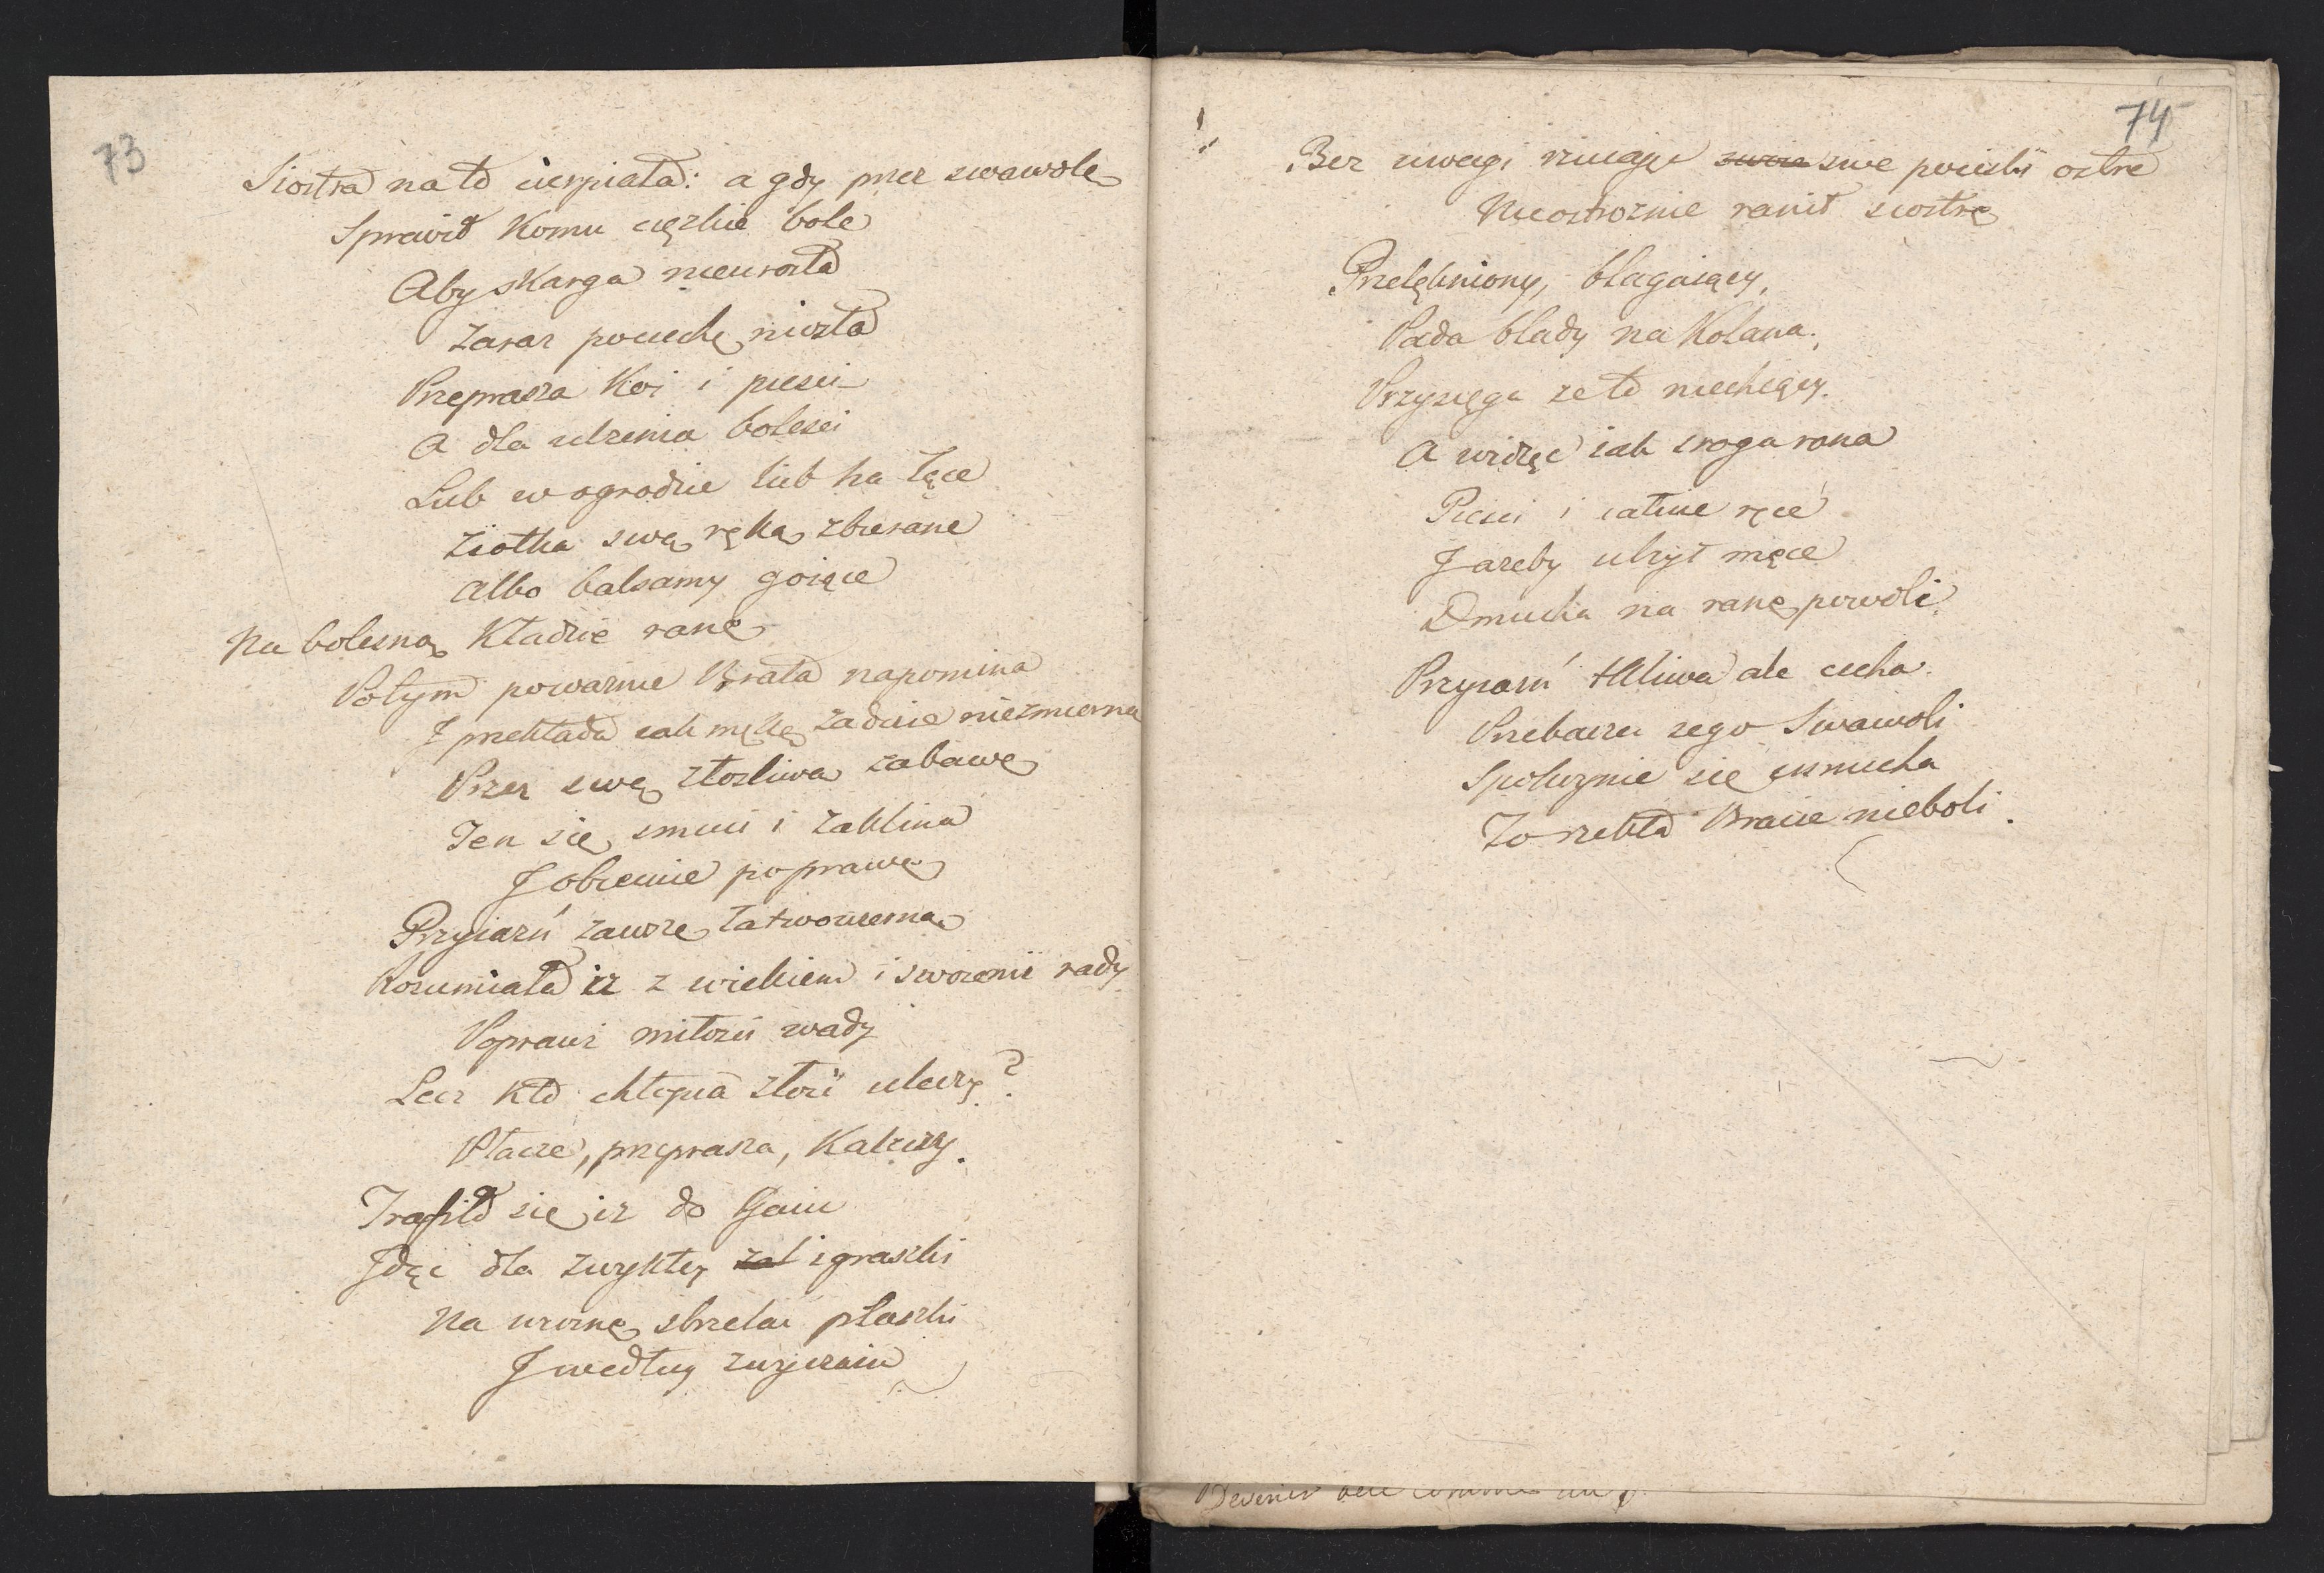 73
Siostra na to cierpiała: a gdy przez swawolę
Sprawił komu cięzkie bole
Aby skarga nieurosła
Zaraz pociechę niosła
Przeprasza koi i piesci
A dla ulzenia bolesci
Lub w ogrodzie lub na łące
Ziołka swą ręką zbierane
Albo balsamy goiące
Na bolesną kładzie ranę
Potym powaznie Brata napomina
I przekłada iak mękę zadaie niezmierną
Przez swę złosliwą zabawę
Ten się smuci i zaklina
I obiecuie poprawę
Przyiazń zawsze łatwowierna
Rozumiała iz z wiekiem i swoiemi rady
Poprawi miłosci wady
Lecz kto chłopca złosci uleczy?
Płacze, przeprasza, kaleczy.
Trafiło się iz do Gaiu
Idąc dla zwykłey zal igraszki
Na wiosnę strzelać ptaszki
I według zwyczaiu
74
Bez uwagi rzucaiąc swoie swe pociski ostre
Nieostroznie ranił siostrę
Przelękniony, błagaiący,
Pada blady na kolana.
Przysięga ze to niechcący.
A widząc iak sroga rana
Piesci i całuie ręce
I azeby ulzył męce
Dmucha na ranę powoli
Przyiazń tkliwa ale cicha
Przebacza iego Swawoli
Spoluznie się usmiecha
To rzekła Bracie nieboli.